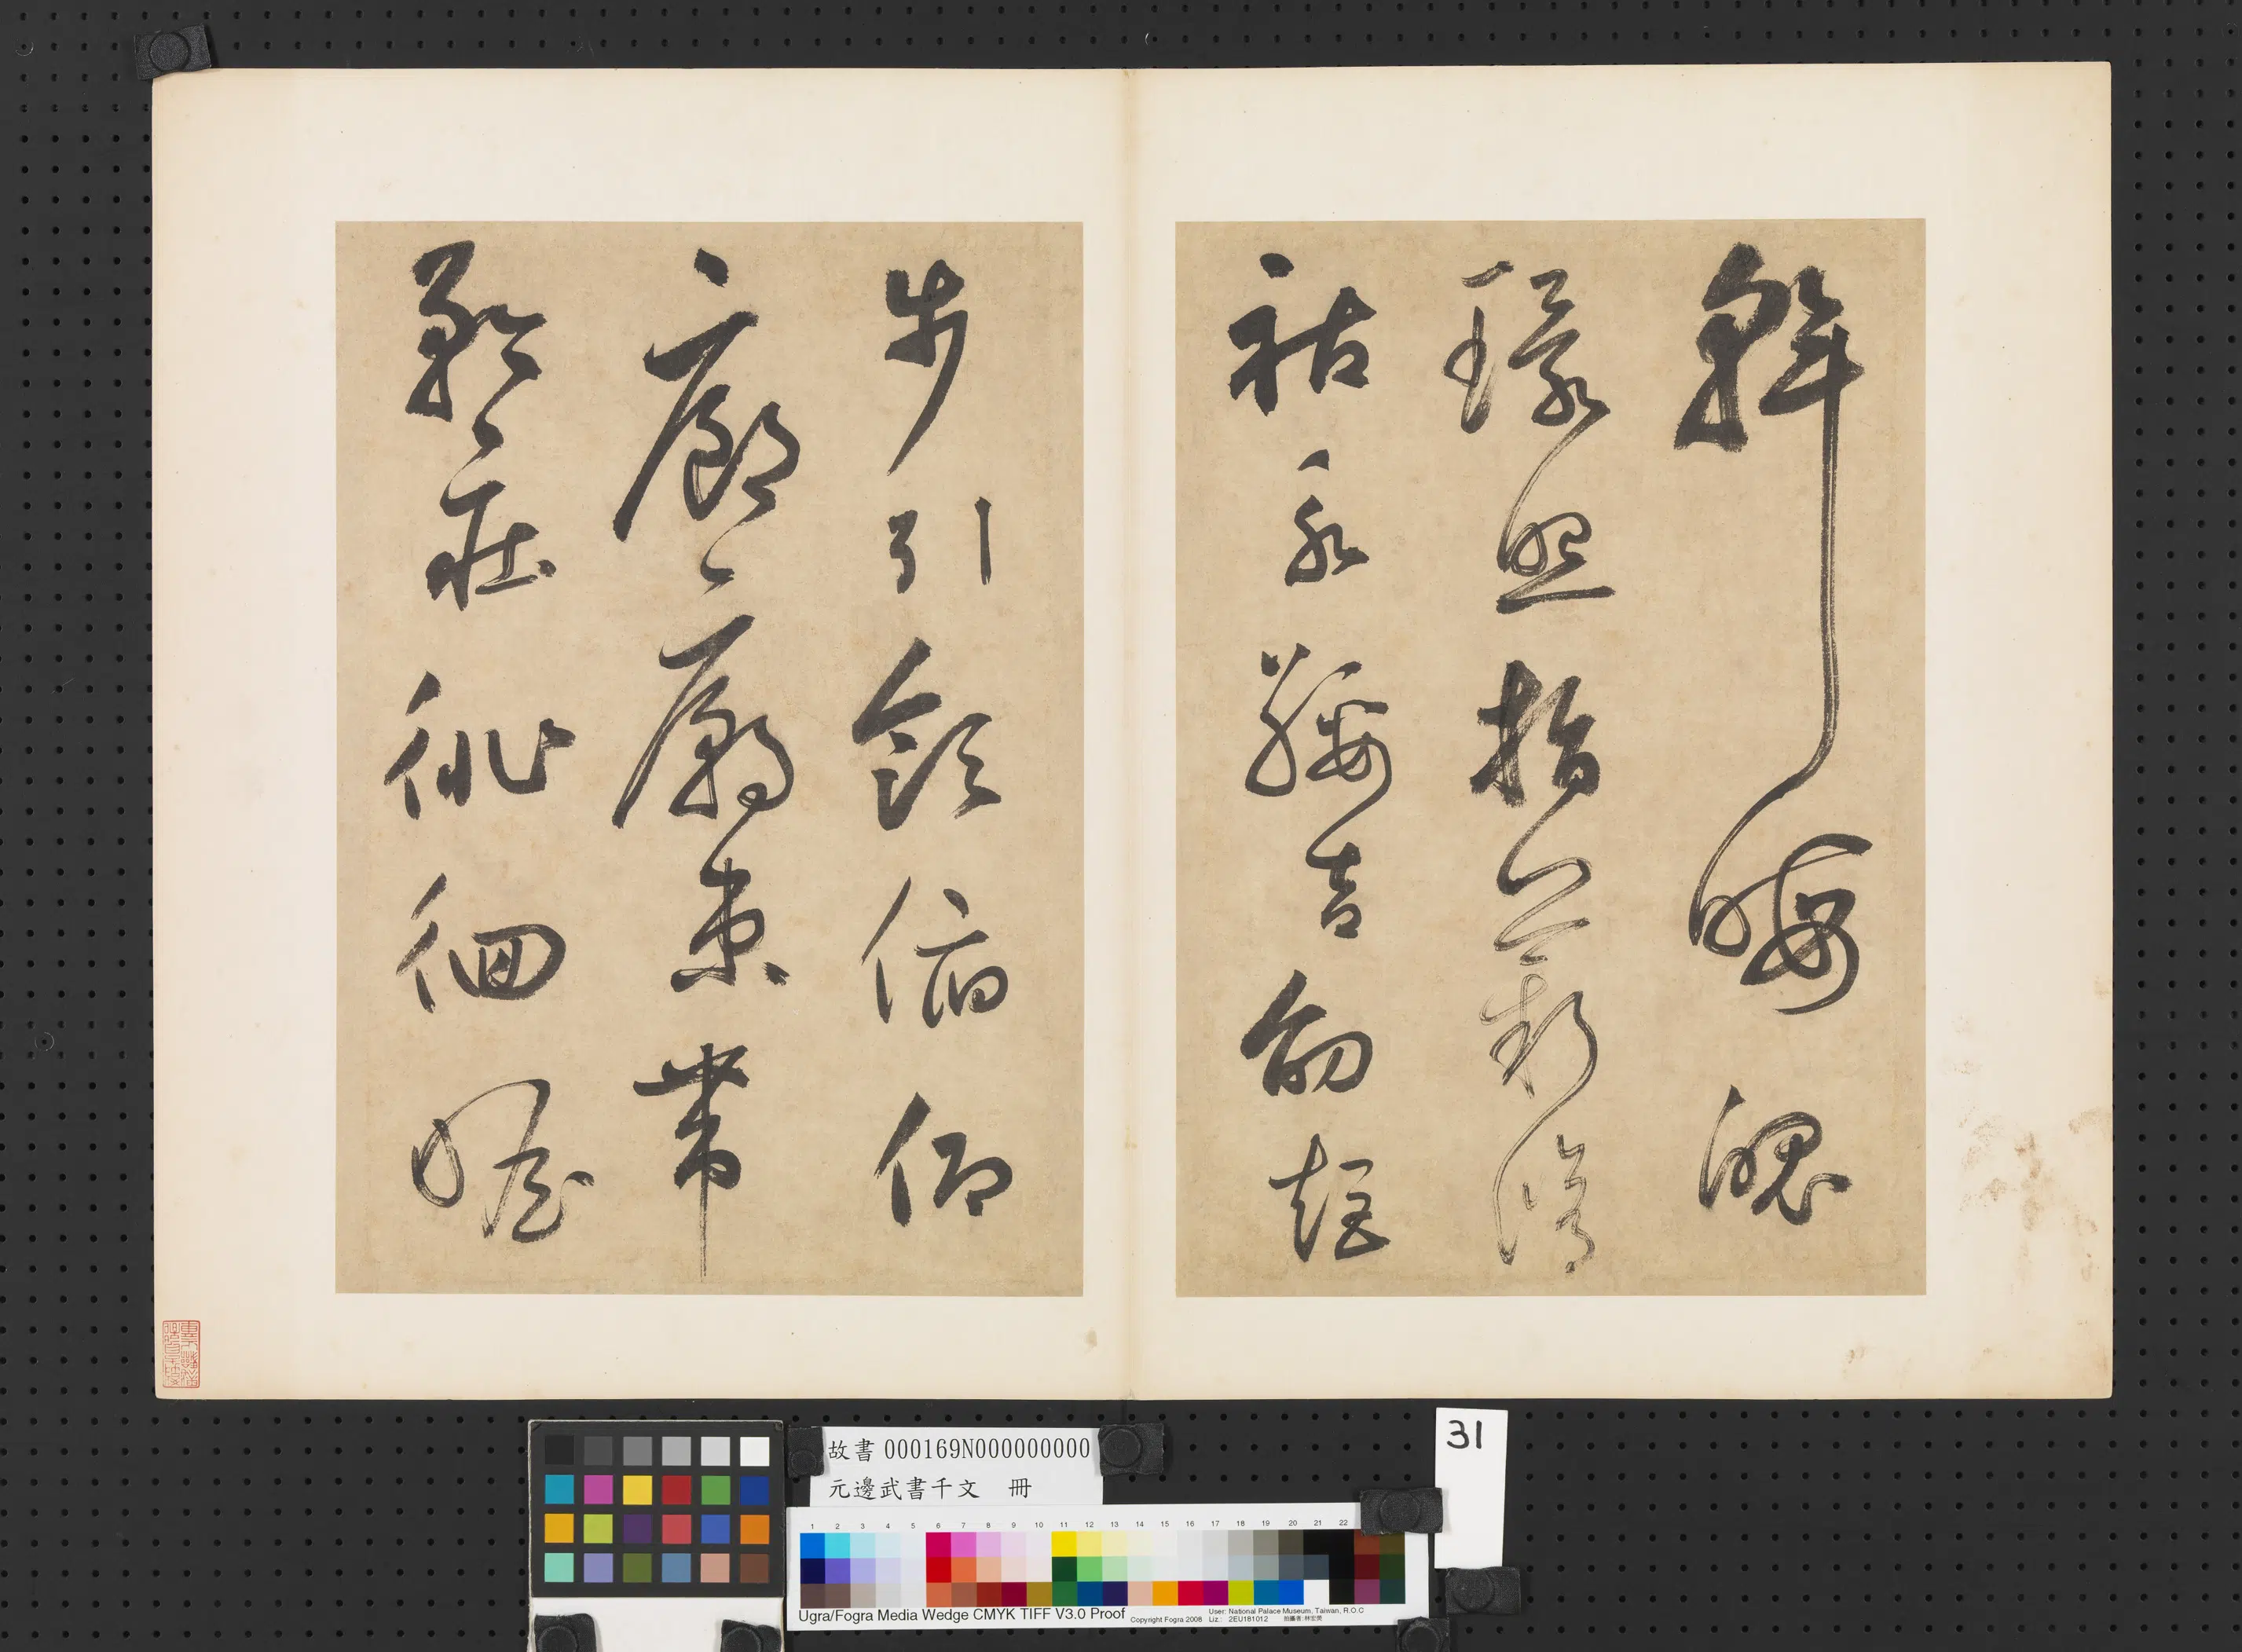 斡晦魄
環照指薪脩
祜永綏吉劭矩
步引領俯仰
廊廟束帶
矜莊徘徊瞻
31
故書 000169N000000000
元邊武書千文　冊
1 2 3 4 5 6 7 8 9 10 11 12 13 14 15 16 17 18 19 20 21 22
Ugra/Fogra Media Wedge CMYK TIFF V3.0 Proof Copyright Fogra 2008
User: National Palace Museum, Taiwan, R.O.C
Liz.: 2EU181012